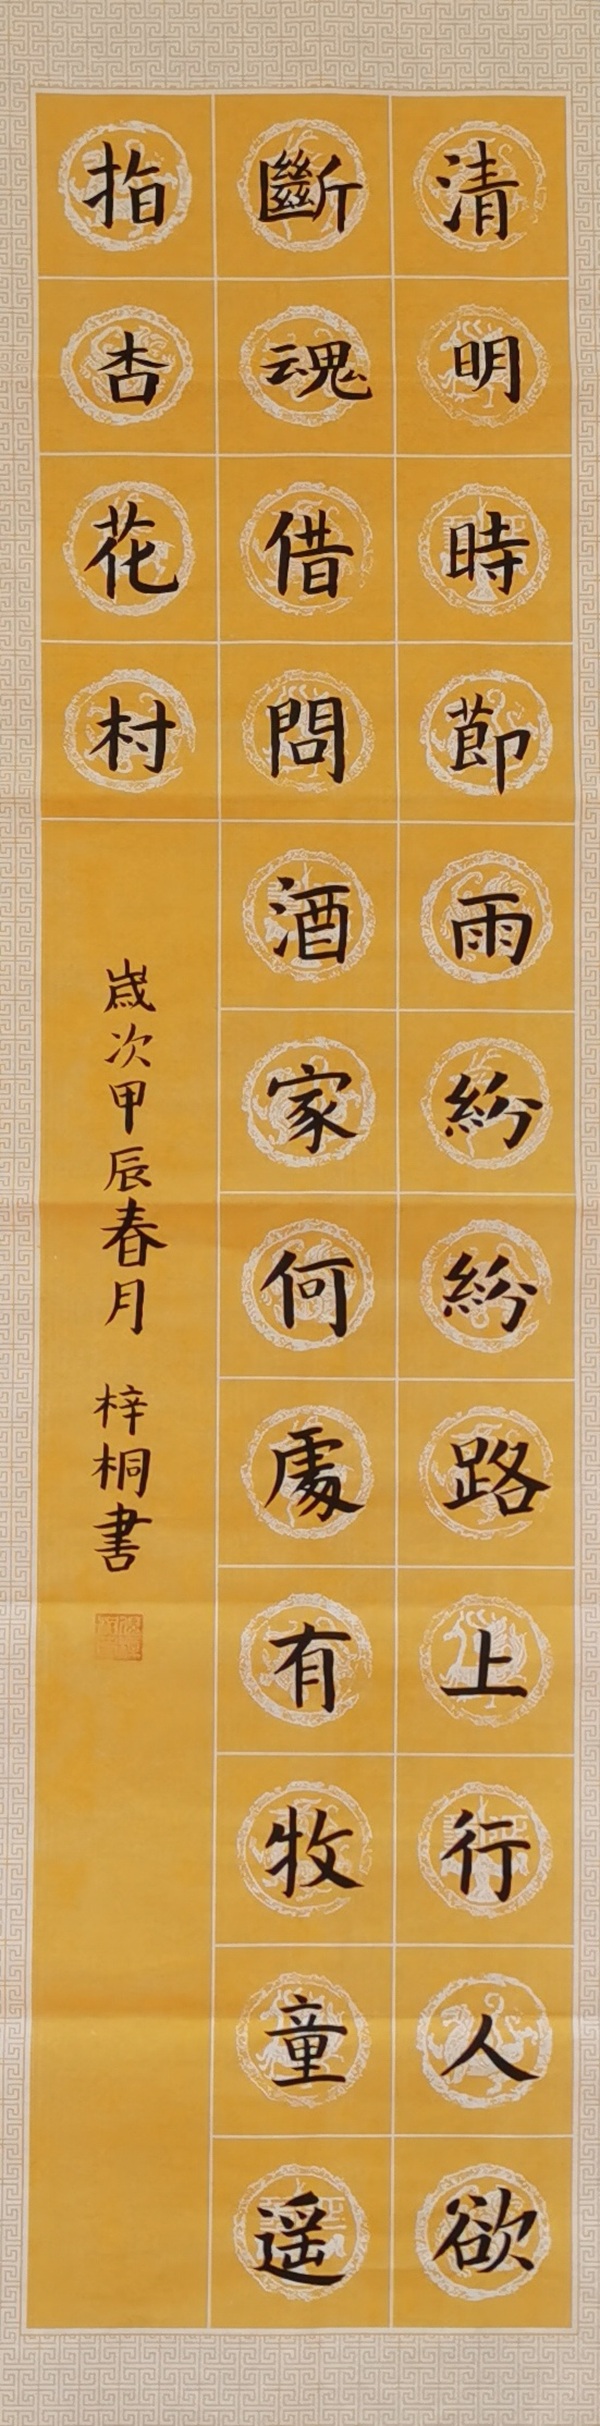 清明時節雨紛紛路上行人欲
斷魂借問酒家何處有牧童遥
指杏花村
歲次甲辰春月 梓桐書